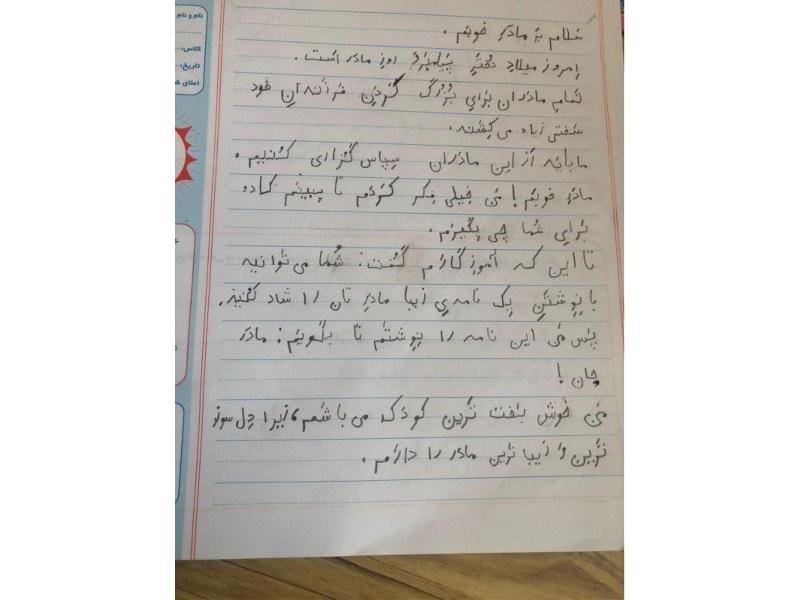 نام و نام
کلاس:
تاریخ:
املای
سَلام بِه مادَرِ خوبَم .
اِمروز میلادِ دُختَرِ پِیامبَر وَ روزِ مادَر اَست .
تَمامِ مادَران بَرایِ بُزُرگ کَردَنِ فَرزَندانِ خود
سَختی زیاد می کِشَند.
ما بایَد اَز این مادَران سِپاس گُزاری کُنیم .
مادَرِ خوبَم! مَن خِیلی فِکر کَردَم تا بِبینَم کادو
بَرایِ شُما چی بِگیرَم .
تا این که آموزِگارَم گُفت: شُما می تَوانید
با نِوِشتَنِ یِک نامه‌یِ زیبا مادَرِتان را شاد کُنید.
پَس مَن این نامه را نِوِشتَم تا بِگویَم: مادَر
جان !
مَن خوش بَخت تَرین کودَک می باشَم ، زیرا دِل سوز
تَرین وَ زیبا تَرین مادَر را دارَم .